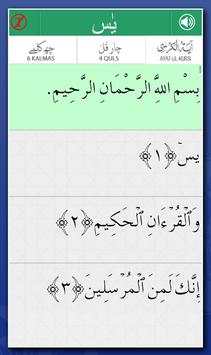 يٰس
آيَةُ الْكُرْسِي
AYAT UL KURSI
چار قل
4 QULS
چھ کلمے
6 KALMAS
بِسْمِ اللَّهِ الرَّحْمَانِ الرَّحِيمِ.
يسٓ ﴿١﴾
وَٱلْقُرْءَانِ ٱلْحَكِيمِ ﴿٢﴾
إِنَّكَ لَمِنَ ٱلْمُرْسَلِينَ ﴿٣﴾